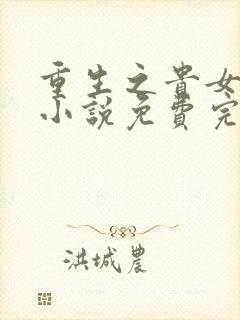 重生之貴女
小說免費完
洪城農